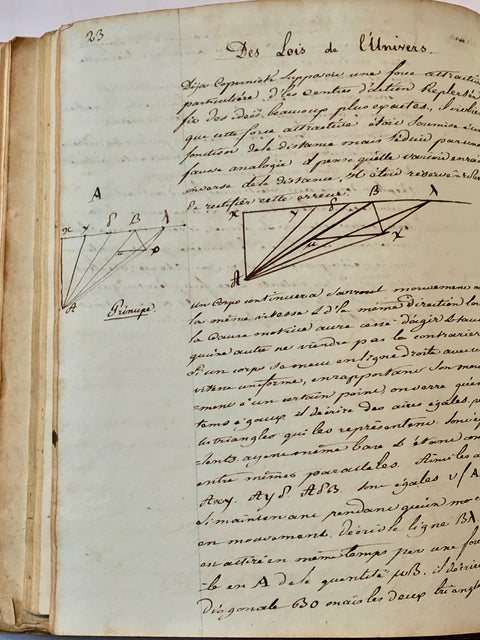 23
Des Lois de l'Univers.
Déja Copernick supposoit une force attractive
particulière, d'les centres d'action Kepler se
fit des idées beaucoup plus exactes, il
que cette force attractive étoit soumise à un
fonction de la distance mais séduit par une
fausse analogie il pensa qu'elle varioit en rai
inverse de la distance, il étoit réservé à
de rectifier cette erreur.
A
x y δ B λ
x y δ B λ
u φ
u x
A
A
Principe.
Un corps continuera à mouvement
la même vitesse & d la même direction lors
la cause motrice aura cessé d'agir si tout
qu'une autre ne vienne pas la contrarier
Si un corps se meut en ligne droite avec u
vitesse uniforme, en rapportant son mou
-ment à un certain point, on verra qu'en
tems égaux il décrira des aires égales, p
les triangles qui les représentent sont
-lents ayant même base & étant com
entre mêmes parallèles. Ainsi les a
Axy. Ayδ. AδB. sont égales
Si maintenant pendant qu'un mo
en mouvement. décrit la ligne Bλ
est attiré en même temps par une for
-le en A de la quantité uB. il décrira
diagonale mais les deux triangl